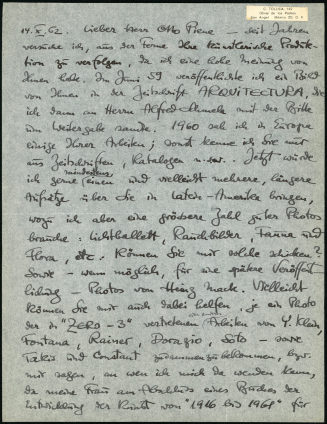 C. TOLUCA 147
Olivar de los Padres
San Angel México 20, D. F.
14. X. 62. Lieber Herr Otto Piene — seit Jahren
versuche ich, aus der Ferne Ihre künstlerische Produk-
tion zu verfolgen, da ich eine hohe Meinung von
Ihnen habe. Im Juni 59 veröffentlichte ich ein Bild
von Ihnen in der Zeitschrift ARQUITECTURA, die
ich dann an Herrn Alfred Schmela mit der Bitte
um Weitergabe sandte. 1960 sah ich in Europa
einige Ihrer Arbeiten; sonst kenne ich Sie nur
aus Zeitschriften, Katalogen u.s.w.. Jetzt würde
ich gerne mindestens einen und vielleicht mehrere, längere
Aufsätze über Sie in Latein-Amerika bringen,
wozu ich aber eine grössere Zahl guter Photos
brauche: Lichtballett, Rauchbilder, Fauna und
Flora, etc. Können Sie mir solche schicken?
Sowie — wenn möglich, für eine spätere Veröffent-
lichung — Photos von Heinz Mack. Vielleicht
können Sie mir auch dabei helfen, je ein Photo
der in "ZERO-3" vertretenen Arbeiten von Y. Klein,
Fontana, Rainer, Dorazio, Soto — sowie
Takis und Constant zusammenzubekommen, bzw.
mir sagen, an wen ich mich da wenden kann,
da meine Frau am Abschluss eines Buches der
Entwicklung der Kunst von "1916 bis 1961" für